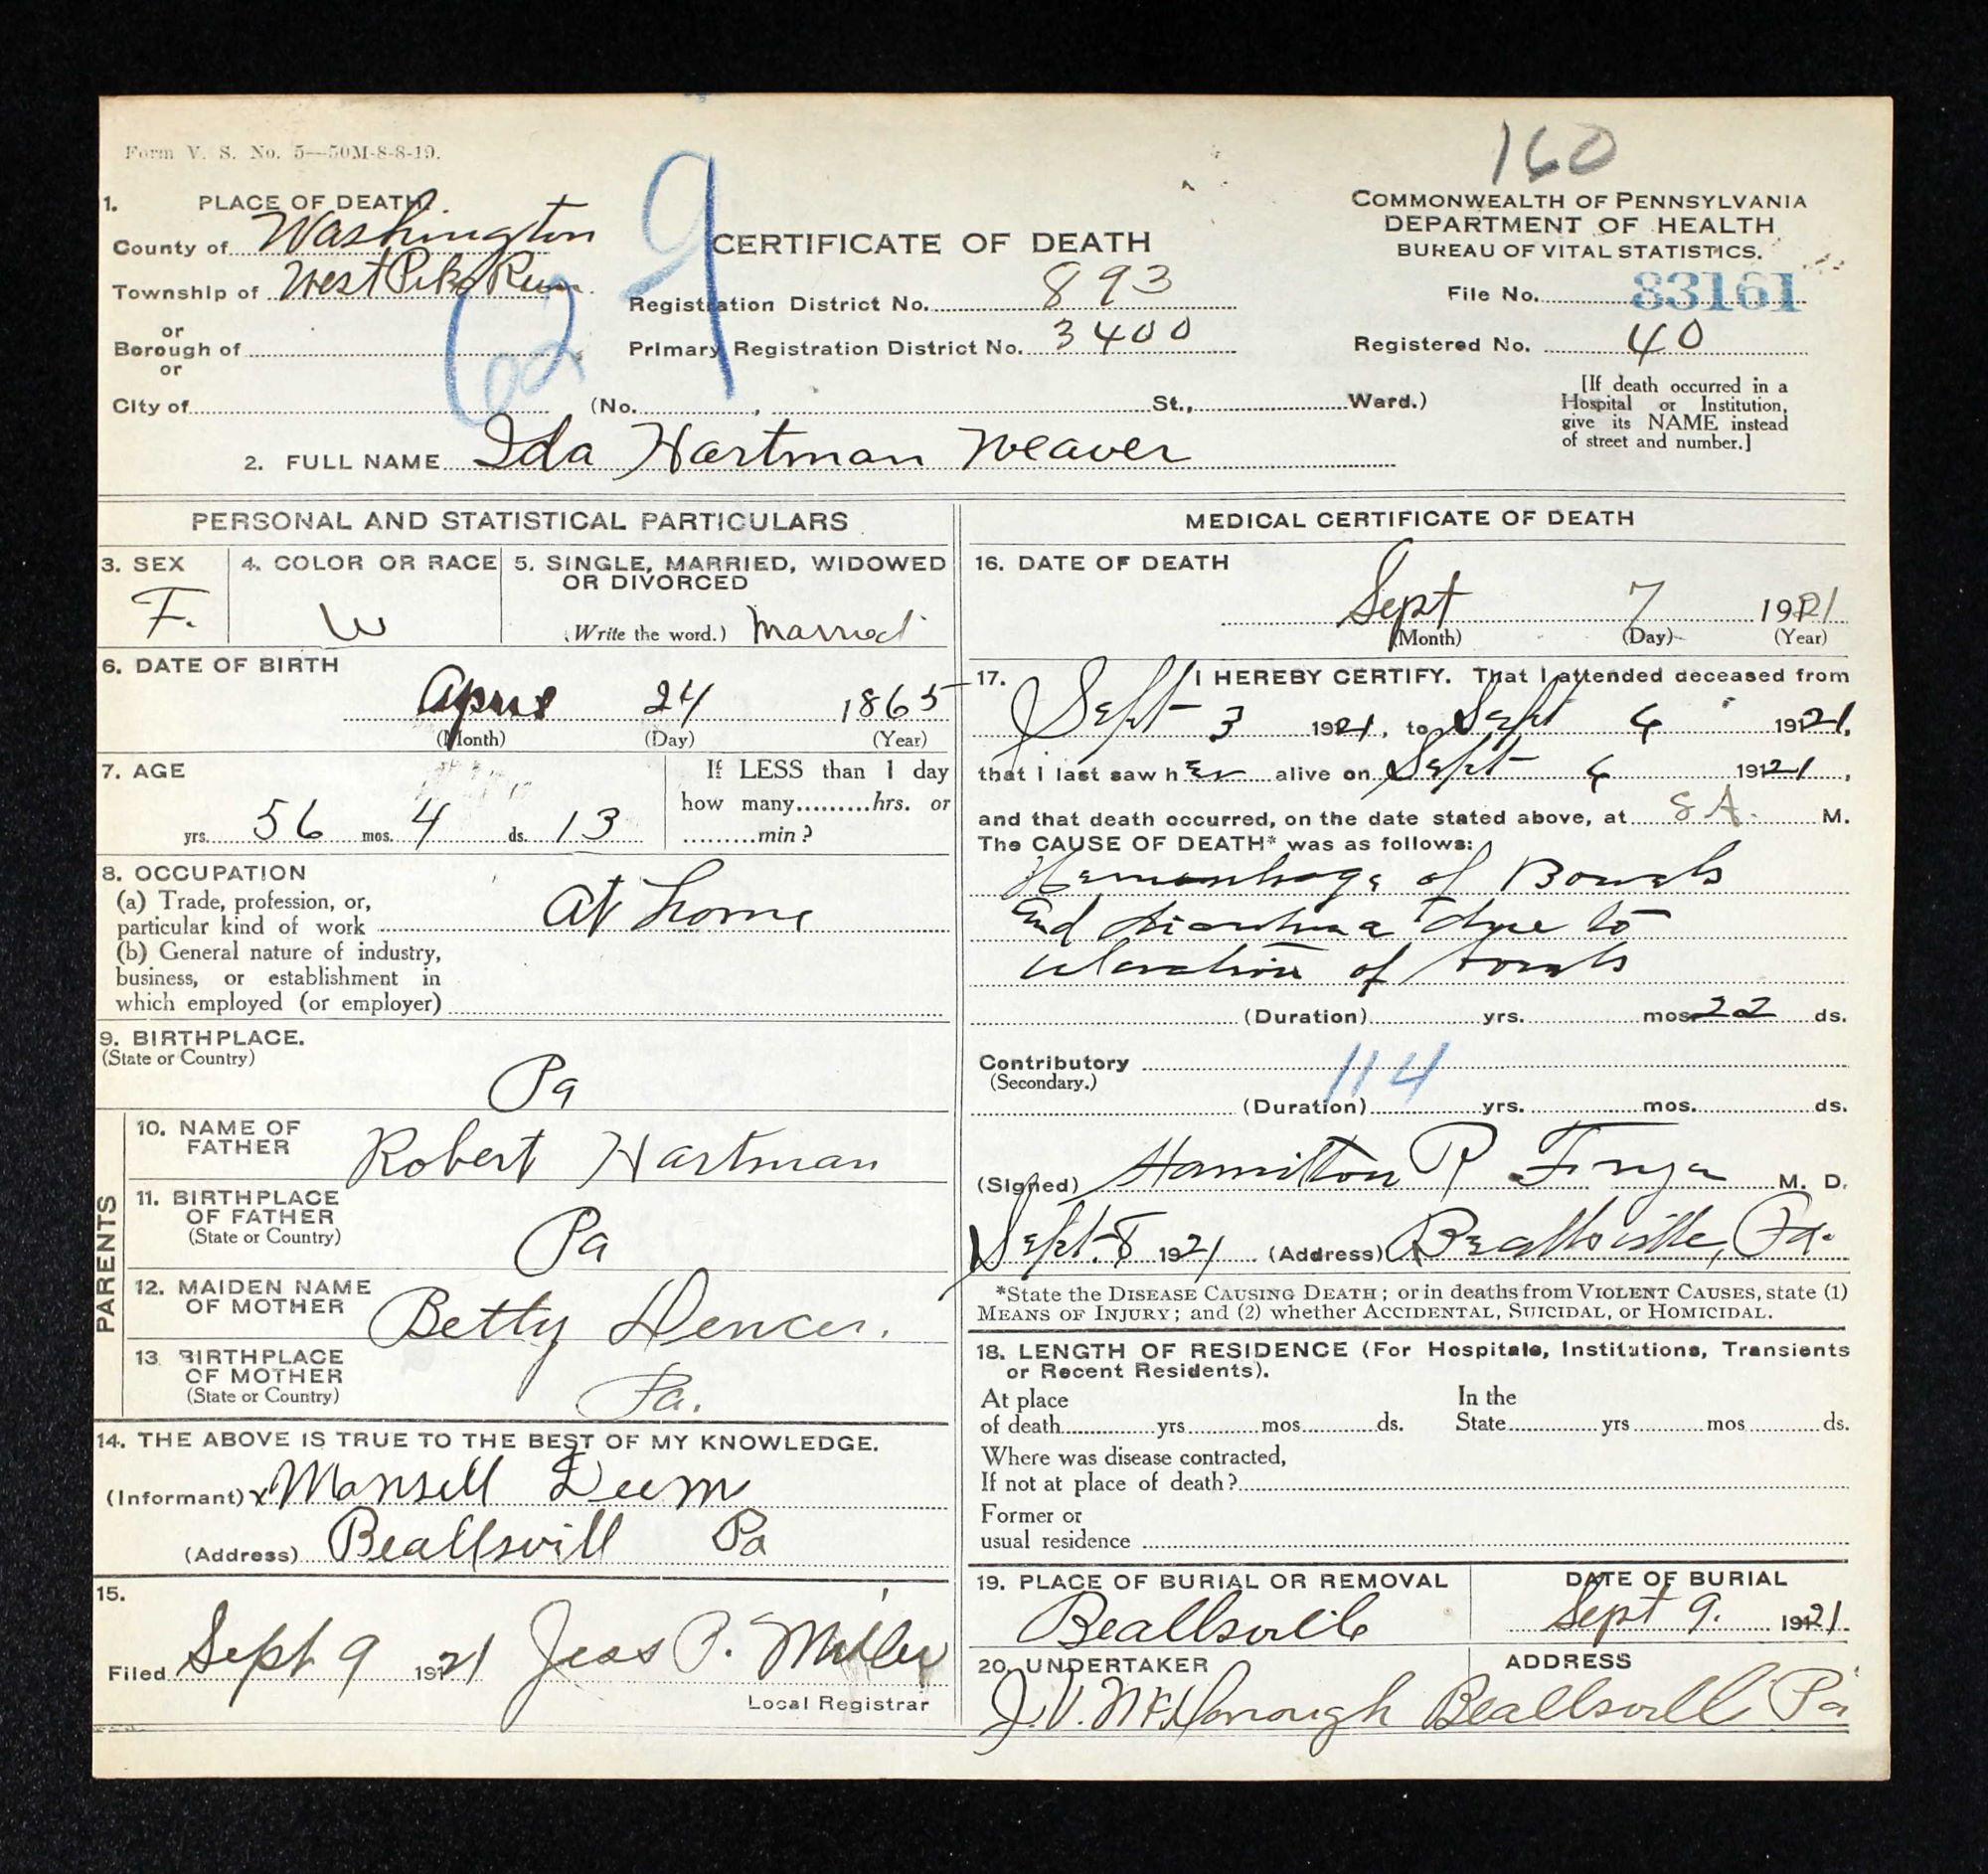 160
Form V. S. No. 5—50M-8-8-19.
COMMONWEALTH OF PENNSYLVANIA
DEPARTMENT OF HEALTH
BUREAU OF VITAL STATISTICS.
1. PLACE OF DEATH.
County of Washington
Township of West Pike Run
or
Borough of
or
City of
9
62
CERTIFICATE OF DEATH
Registration District No. 893
Primary Registration District No. 3400
File No. 83161
Registered No. 40
(No. , St., Ward.)
[If death occurred in a
Hospital or Institution,
give its NAME instead
of street and number.]
2. FULL NAME Ida Hartman Weaver
PERSONAL AND STATISTICAL PARTICULARS
3. SEX
F.
4. COLOR OR RACE
W
5. SINGLE, MARRIED, WIDOWED
OR DIVORCED
(Write the word.) Married
6. DATE OF BIRTH
April 24 1865
(Month) (Day) (Year)
7. AGE
yrs. 56 mos. 4 ds. 13
If LESS than 1 day
how many.........hrs. or
.........min?
8. OCCUPATION
(a) Trade, profession, or,
particular kind of work At home
(b) General nature of industry,
business, or establishment in
which employed (or employer)
9. BIRTHPLACE.
(State or Country)
Pa
PARENTS
10. NAME OF
FATHER
Robert Hartman
11. BIRTHPLACE
OF FATHER
(State or Country)
Pa
12. MAIDEN NAME
OF MOTHER
Betty
13 BIRTHPLACE
OF MOTHER
(State or Country)
Pa.
14. THE ABOVE IS TRUE TO THE BEST OF MY KNOWLEDGE.
(Informant) x Mansell Deem
(Address) Beallsvill Pa
15.
Filed Sept 9 1921 Jess P. Miller
Local Registrar
MEDICAL CERTIFICATE OF DEATH
16. DATE OF DEATH
Sept 7 1921
(Month) (Day) (Year)
17. I HEREBY CERTIFY. That I attended deceased from
Sept 3 1921, to Sept 6 1921,
that I last saw her alive on Sept 6 1921,
and that death occurred, on the date stated above, at 8 A. M.
The CAUSE OF DEATH* was as follows:
Hemorrhage of Bowels
and diarrhea due to
ulceration of bowels
(Duration) yrs. mos. 22 ds.
Contributory
(Secondary.)
114
(Duration) yrs. mos. ds.
(Signed) Hamilton R M. D.
Sept. 8 1921 (Address) Beallsville, Pa.
*State the DISEASE CAUSING DEATH; or in deaths from VIOLENT CAUSES, state (1)
MEANS OF INJURY; and (2) whether ACCIDENTAL, SUICIDAL, or HOMICIDAL.
18. LENGTH OF RESIDENCE (For Hospitals, Institutions, Transients
or Recent Residents).
At place
of death yrs mos ds.
In the
State yrs mos ds.
Where was disease contracted,
If not at place of death?
Former or
usual residence
19. PLACE OF BURIAL OR REMOVAL
Beallsville
DATE OF BURIAL
Sept 9. 1921.
20. UNDERTAKER
ADDRESS
J. V. McDonough Beallsvill Pa